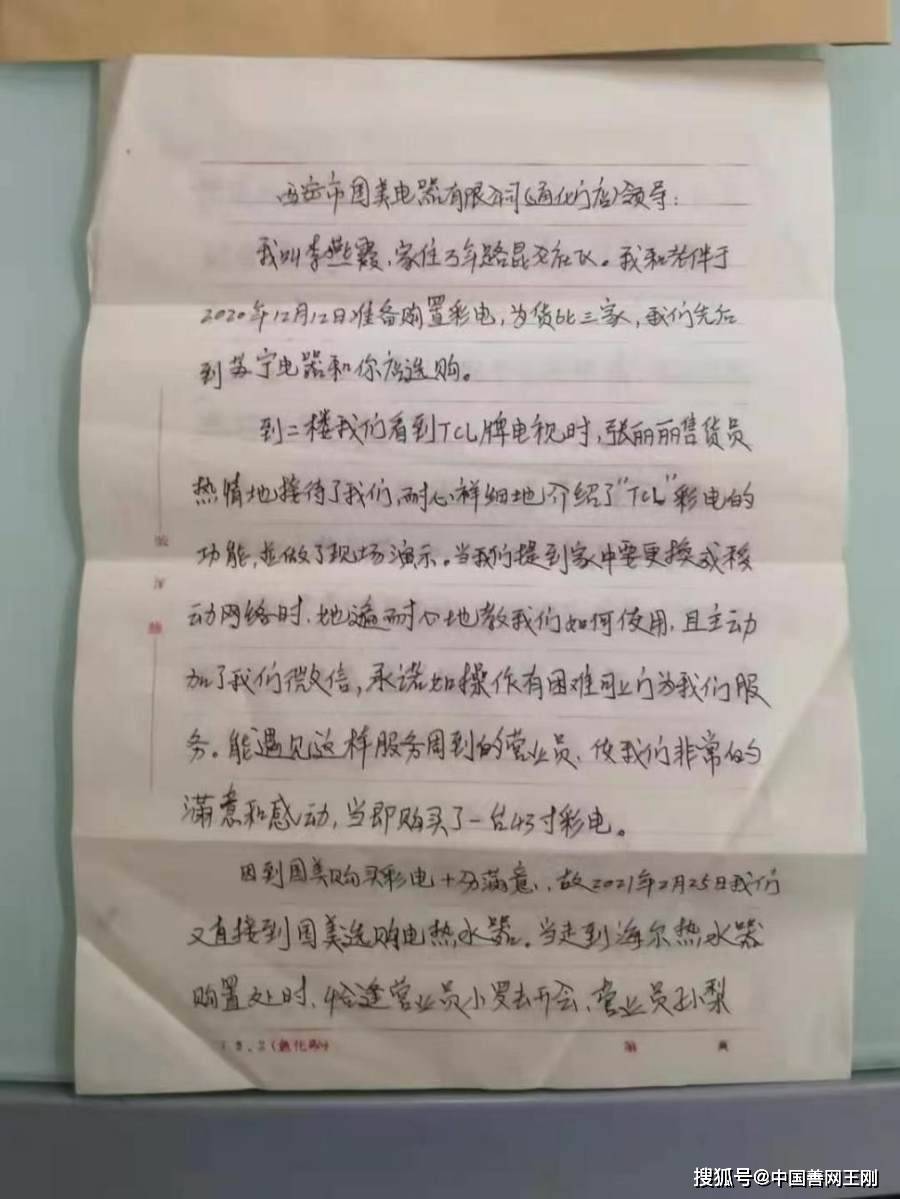 西安市国美电器有限公司(通化门店)领导:
我叫李燕霞,家住万年路昆仑后区。我和老伴于
2020年12月12日准备购置彩电,为货比三家,我们先后
到苏宁电器和你店选购。
到二楼我们看到TCL牌电视时,张丽丽售货员
热情地接待了我们,耐心详细地介绍了“TCL”彩电的
功能,并做了现场演示。当我们提到家中要更换成移
动网络时,她遂耐心地教我们如何使用,且主动
加了我们微信,承诺如操作有困难可上门为我们服
务。能遇见这样服务周到的营业员,使我们非常的
满意和感动,当即购买了一台43寸彩电。
因到国美购买彩电十分满意,故2021年2月25日我们
又直接到国美选购电热水器。当走到海尔热水器
购置处时,恰逢营业员小罗去开会,营业员孙梨
装
订
线
第 页
搜狐号@中国善网王刚